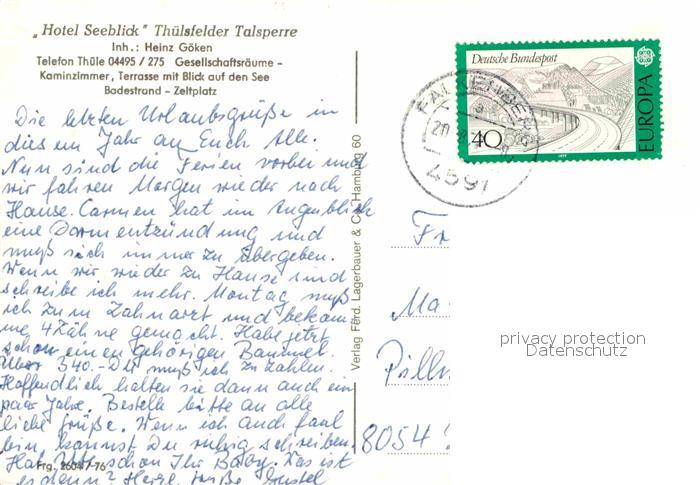 „Hotel Seeblick" Thülsfelder Talsperre
Inh.: Heinz Göken
Telefon Thüle 04495 / 275 Gesellschaftsräume –
Kaminzimmer, Terrasse mit Blick auf den See
Badestrand – Zeltplatz
Die letzten Urlaubsgrüße in
diesem Jahr an Euch Alle.
Nun sind die Ferien vorbei und
wir fahren Morgen wieder nach
Hause. Carmen hat im Augenblick
eine Darmentzündung und
muß sich immer zu übergeben.
Wenn wir wieder zu Hause sind
schreibe ich mehr. Montag muß
ich zum Zahnarzt und bekom-
me 4 Zähne gemacht. Habe jetzt
schon einen gehörigen Bammel.
Über 340.-DM muß ich zu zahlen.
Hoffendlich halten sie dann auch ein
paar Jahre. Bestelle bitte an alle
liebe Grüße. Wenn ich auch faul
bin, kannst Du ruhig schreiben.
Hat schon Ihr Baby. Was ist
es denn? Herzl. Grüße
Frg. 2604/7-76
Verlag Ferd. Lagerbauer & Co., Hamburg 60
Deutsche Bundespost
40
EUROPA
4591
Fr
Ma
Pilln
8054
privacy protection
Datenschutz